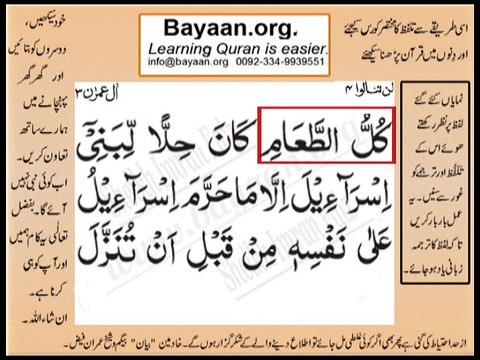 Bayaan.org.
Learning Quran is easier.
info@bayaan.org 0092-334-9939551
اسی طریقے سے تلفظ کا مختصر کورس کیجئے
اور دِنوں میں قرآن پڑھنا سیکھئے
لن تنالوا ۴
اٰل عمرٰن ۳
كُلُّ الطَّعَامِ كَانَ حِلًّا لِّبَنِیْۤ
اِسْرَآءِیْلَ اِلَّا مَا حَرَّمَ اِسْرَآءِیْلُ
عَلٰی نَفْسِهٖ مِنْ قَبْلِ اَنْ تُنَزَّلَ
نمایاں کئے گئے
لفظ پر نظر رکھتے
ہوئے اس کے
تلفظ اور ترجمے کو
غور سے سنیں۔ یہ
عمل بار بار کریں
تاکہ لفظ کا ترجمہ
زبانی یاد ہو جائے۔
خود سیکھیں،
دوسروں کو بتائیں
اور گھر گھر
پہنچانے میں
ہمارے ساتھ
تعاون کریں۔
اب کوئی نبی نہیں
آئے گا۔ بفضل
تعالٰی یہ کام ہمیں
اور آپ کو ہی
کرنا ہے۔
ان شاء اللہ۔
از حد احتیاط کی گئی ہے پھر بھی اگر کوئی غلطی مل جائے تو اطلاع دینے والے کے شکر گزار ہوں گے۔ خادمین "بیان" بیگم و شیخ عمران فیض۔